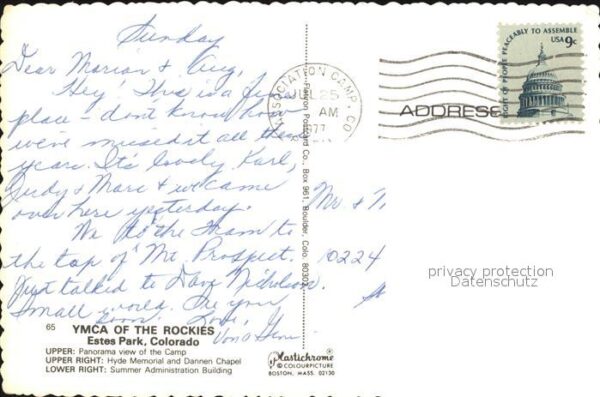 Sunday
Dear Marian & Aug,
Hey! This is a fun
place - don't know how
we've missed it all these
years. It's lovely. Karl,
Judy & Marc & we came
over here yesterday.
We the tram to
the top of Mt. Prospect.
Just talked to Dave Nicholson.
Small world. See you
soon. Love,
65 YMCA OF THE ROCKIES
Estes Park, Colorado
UPPER: Panorama view of the Camp
UPPER RIGHT: Hyde Memorial and Dannen Chapel
LOWER RIGHT: Summer Administration Building
Postcard Co., Box 961, Boulder, Colo. 80302
Plastichrome
© COLOURPICTURE
BOSTON, MASS. 02130
ASSOCIATION CAMP, CO
JUL 25
AM
1977
RIGHT OF PEOPLE PEACEABLY TO ASSEMBLE
USA 9c
ADDRESS
Mr & 
10224
privacy protection
Datenschutz